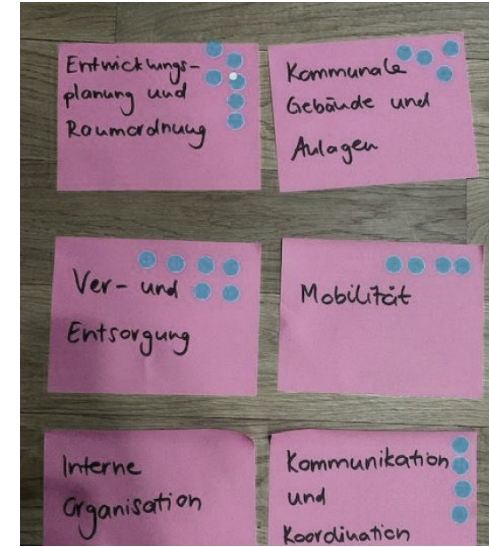 Entwicklungs-
planung und
Raumordnung
Kommunale
Gebäude und
Anlagen
Ver- und
Entsorgung
Mobilität
Interne
Organisation
Kommunikation
und
Koordination